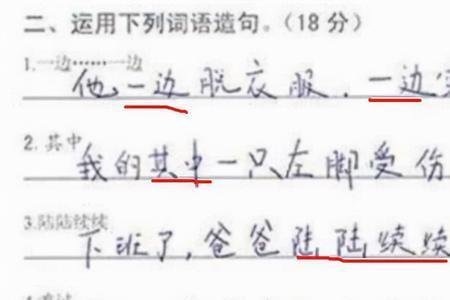 二、运用下列词语造句。(18分)
1.一边……一边
他一边脱衣服，一边
2.其中
我的其中一只左脚受伤
3.陆陆续续
下班了，爸爸陆陆续续